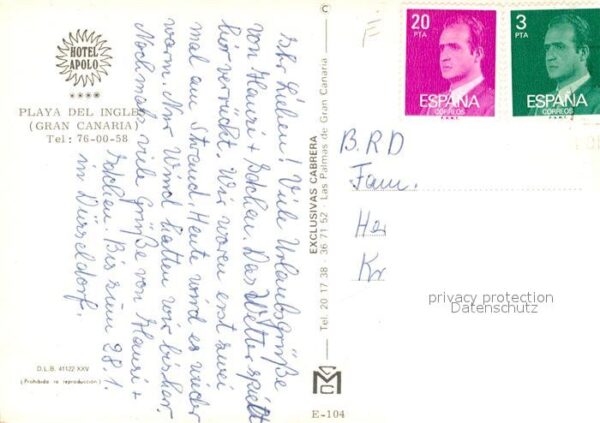 HOTEL
APOLO
PLAYA DEL INGLES
(GRAN CANARIA)
Tel: 76-00-58
Ihr Lieben! Viele Urlaubsgrüße
von Hansi + Gretchen. Das Wetter spielt
hier verrückt. Wir waren erst zwei
mal am Strand. Heute wird es wieder
warm. Nur Wind hatten wir bisher.
Nochmals viele Grüße von Hansi +
Gretchen. Bis zum 28.1.
in Düsseldorf.
D.L.B. 41122 XXV
(Prohibida la reproducción)
C
EXCLUSIVAS CABRERA
Tel. 20 17 38 - 36 71 52 - Las Palmas de Gran Canaria
MCC
E-104
E
20
PTA
ESPAÑA
CORREOS
3
PTA
ESPAÑA
CORREOS
B.R.D
Fam.
Her
Kr
privacy protection
Datenschutz